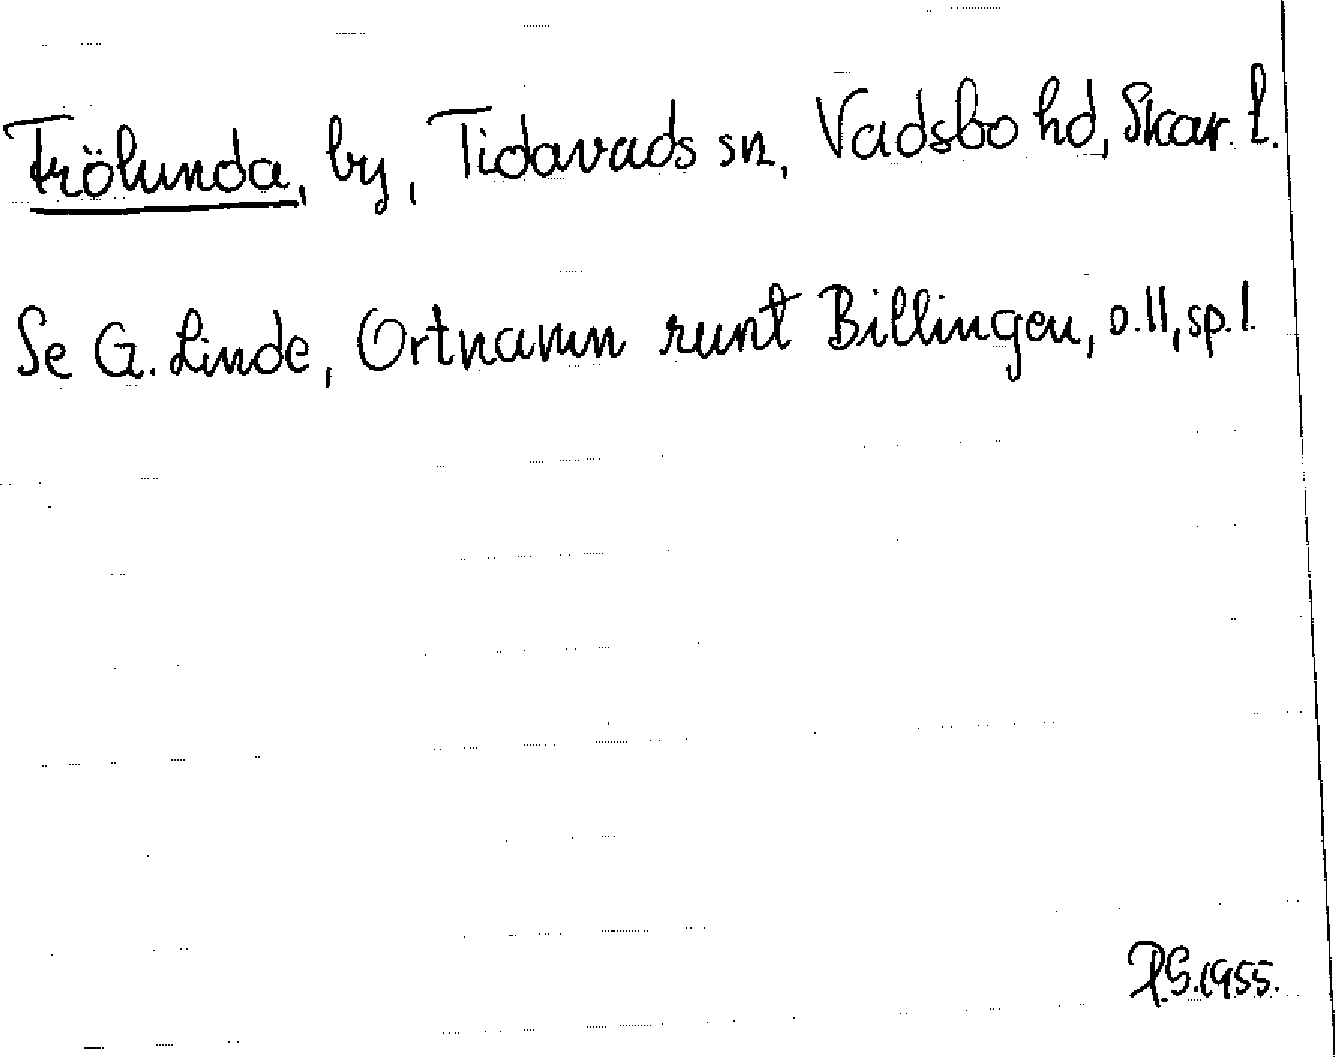 Frölunda, by, Tidavads sn, Vadsbo hd, Skar. l.
Se G. Linde, Ortnamn runt Billingen, o. 11, sp. 1.
P.G. 1955.